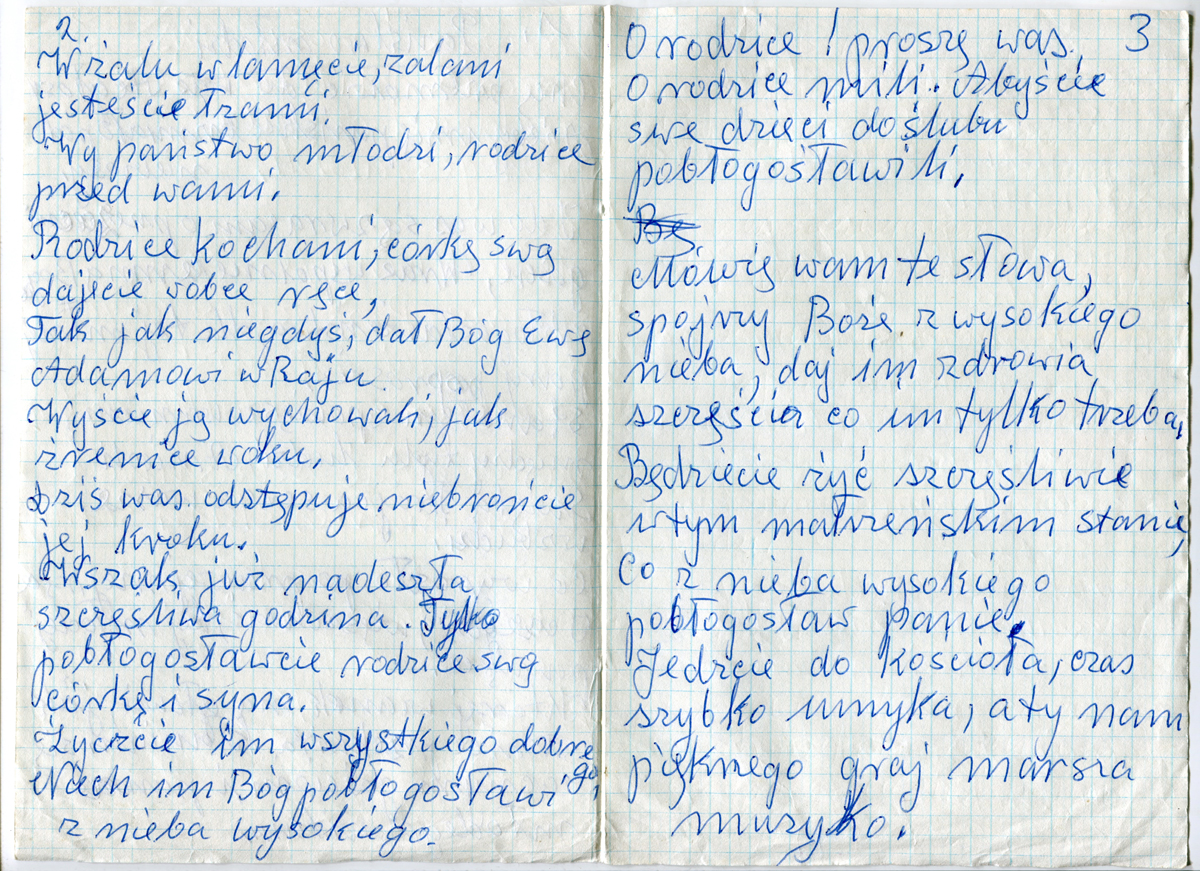 2.
W żalu w lamęcie, zalani
jesteście łzami.
Wy państwo młodzi, rodzice
przed wami.
Rodzice kochani, córkę swą
dajecie wobce ręce,
Tak jak niegdyś, dał Bóg Ewę
Adamowi w Raju.
Wyście ją wychowali, jak
źrenice woku.
Dziś was odstępuje niebrońcie
jej kroku.
Wszak już nadeszła
szczęśliwa godzina. Tylko
pobłogosławcie rodzice swą
córkę i syna.
Życzcie im wszystkiego dobrego,
Niech im Bóg pobłogosławi
z nieba wysokiego.
3
O rodzice! proszę was.
O rodzice mili. Abyście
swe dzieci do ślubu
pobłogosławili.
Be
Mówię wam te słowa,
spójrzy Boże z wysokiego
nieba, daj im zdrowia
szczęścia co im tylko trzeba,
Będziecie żyć szczęśliwie
w tym małżeńskim stanie,
Co z nieba wysokiego
pobłogosław panie.
Jedzcie do kościoła, czas
szybko umyka, a ty nam
pięknego graj marsza
muzyko.